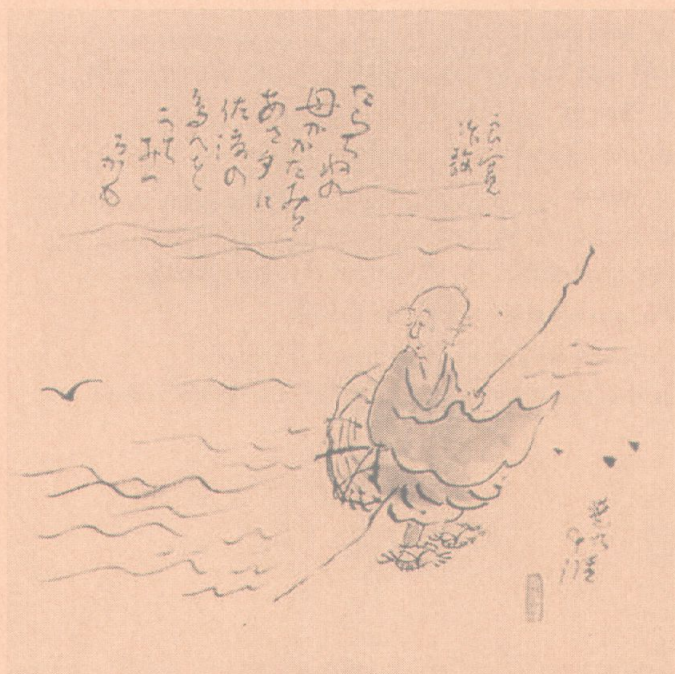 良寛
たらちねの
母がかたみと
あさ夕に
佐渡の
島べを
うち
みつ
るかも